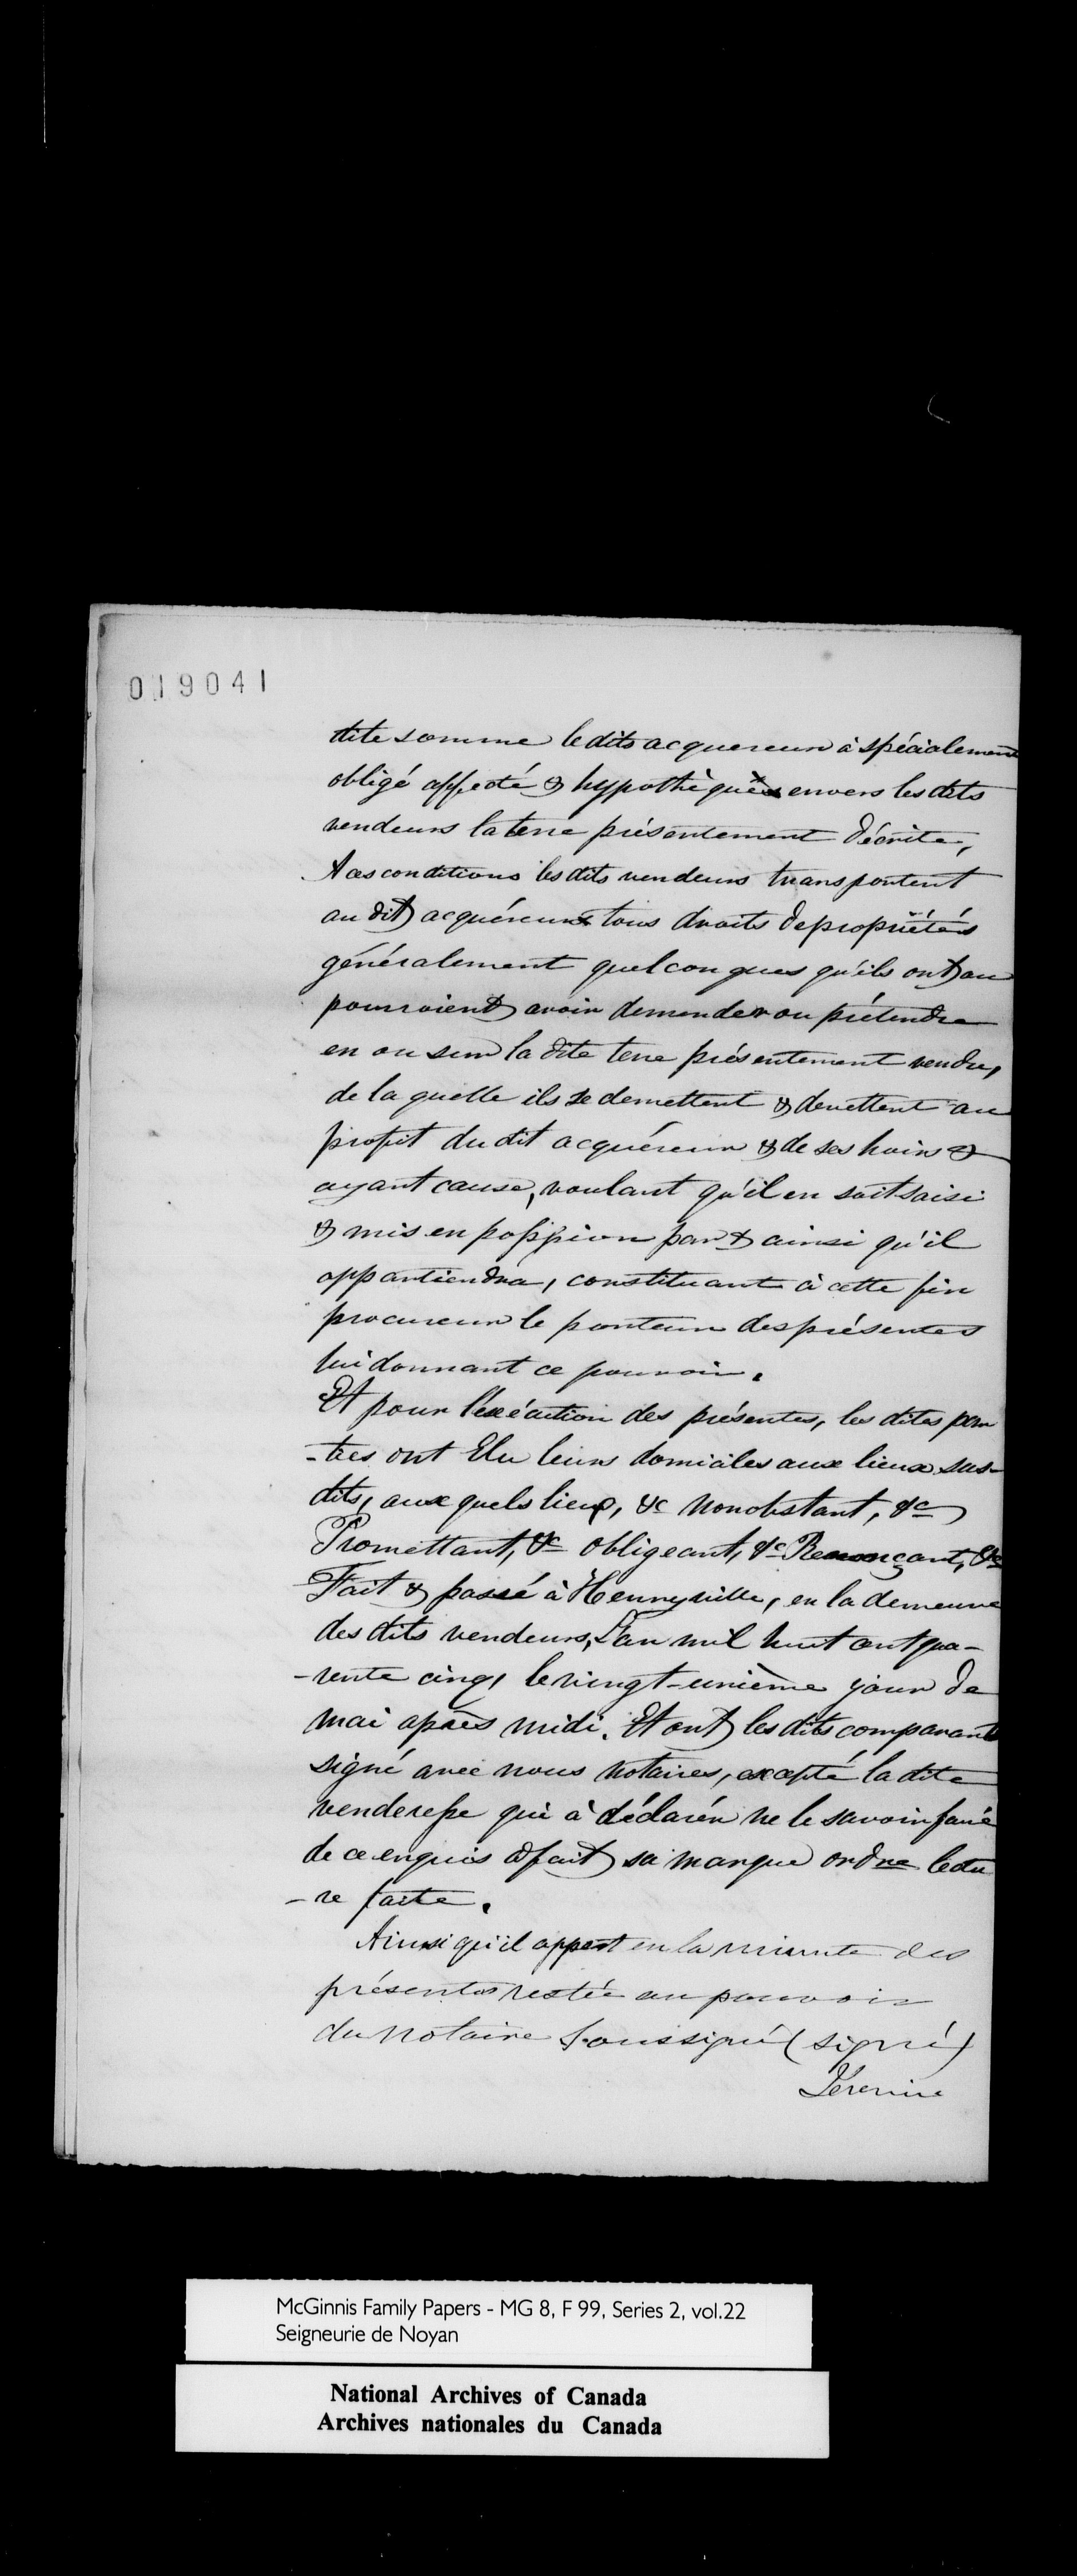 019041
dite somme le dits acquereur à spécialement
obligé affecté & hypothèqués envers les dits
vendeurs la terre présentement décrite,
A ces conditions les dits vendeurs transportent
au dit acquéreur tous droits de propriétés
généralement quelconques qu'ils ont ou
pourraient avoir demander ou prétendre
en ou sur la dite terre présentement vendue,
de la quelle ils se demettent & devettent au
profit du dit acquéreur & de ses hoirs &
ayant cause, voulant qu'il en soit saisi
& mis en possession par & ainsi qu'il
appartiendra, constituant à cette fin
procureur le porteur des présentes
lui donnant ce pouvoir.
Et pour l'éxécution des présentes, les dites par
-ties ont Elu leurs domiciles aux lieux sus-
dits, aux quels lieux, &c nonobstant, &c
Promettant, &c obligeant, &c Renonçant, &c
Fait & passé à Henryville, en la demeure
des dits vendeurs, L'an mil huit cent qua-
-rente cinq, le vingt-unième jour de
mai après midi. Et ont les dits comparants
signé avec nous notaires, excepté la dite
venderesse qui à déclarér ne le savoir faire
de ce enquis a fait sa marque ordre lectu
-re faite.
Ainsi qu'il appert en la minute des
présentes restée au pouvoir
du Notaire Soussigné (signé)
McGinnis Family Papers - MG 8, F 99, Series 2, vol.22
Seigneurie de Noyan
National Archives of Canada
Archives nationales du Canada